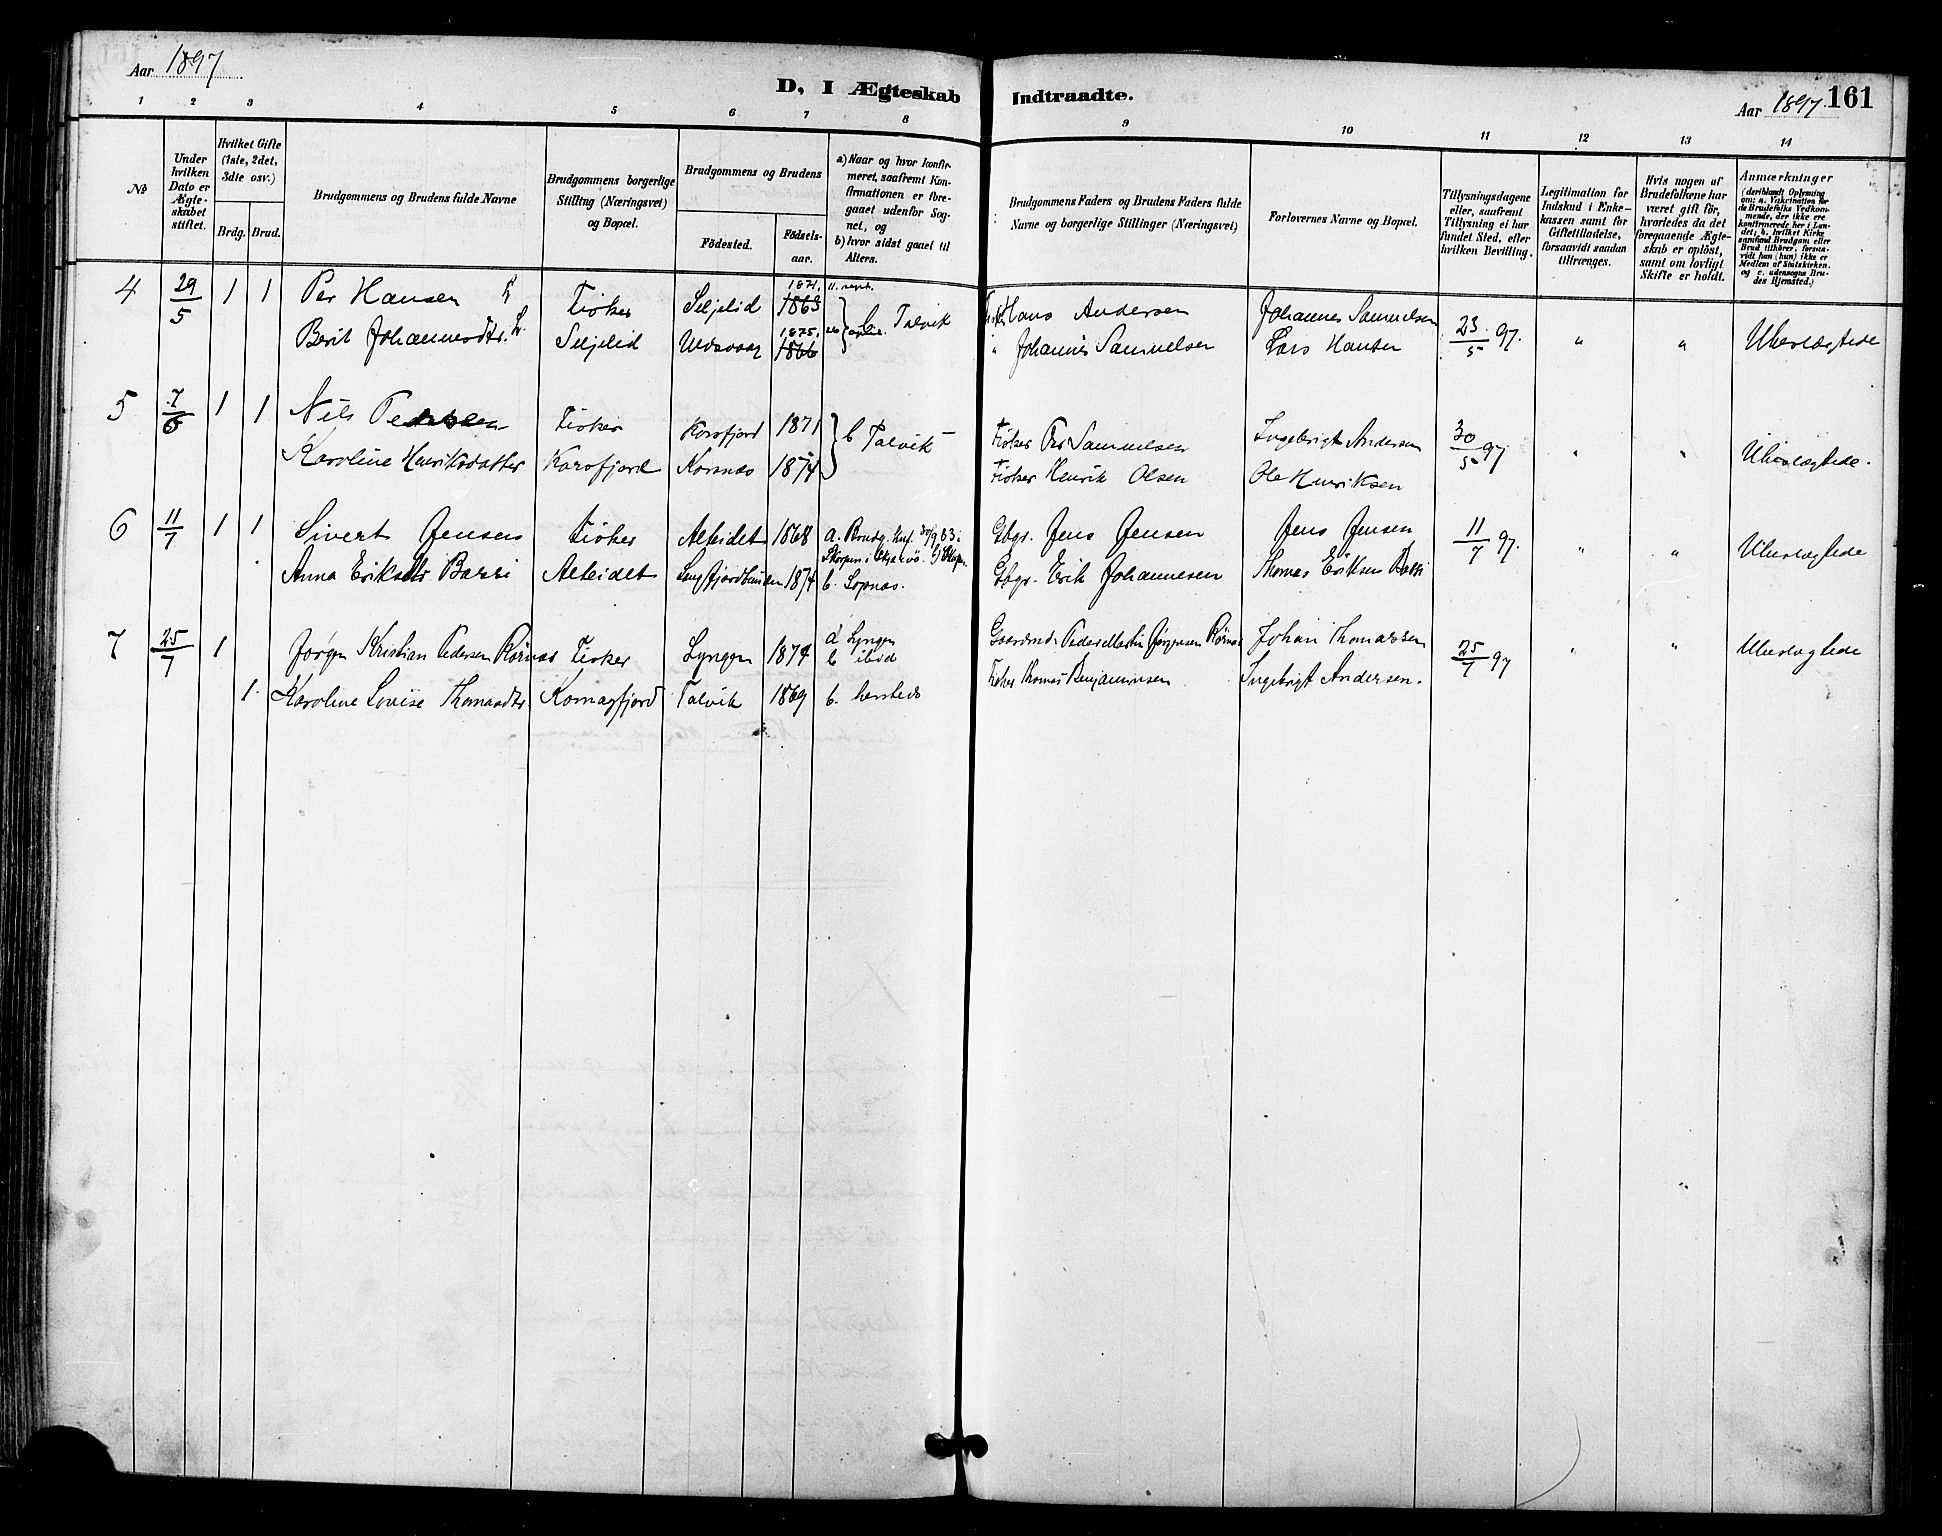 Aar 1897
D, I Ægteskab Indtraadte.
Aar 1897. 161
1 2 3 4 5 6 7 8 9 10 11 12 13 14
No
Under hvilken Dato er Ægteskabet stiftet.
Hvilket Gifte (1ste, 2det, 3die osv.)
Brdg. Brud.
Brudgommens og Brudens fulde Navne
Brudgommens borgerlige Stilling (Næringsvei) og Bopæl.
Brudgommens og Brudens
Födested. Födselsaar.
a) Naar og hvor konfirmeret, saafremt Konfirmationen er foregaaet udenfor Sognet, og
b) hvor sidst gaaet til Alters.
Brudgommens Faders og Brudens Faders fulde Navne og borgerlige Stillinger (Næringsvei)
Forlovernes Navne og Bopæl.
Tillysningsdagene eller, saafremt Tillysning ei har fundet Sted, efter hvilken Bevilling.
Legitimation for Indskud i Enkekassen samt for Giftetilladelse, forsaavidt saadan tiltrænges.
Hvis nogen af Brudefolkene har været gift för, hvorledes da det foregaaende Ægteskab er oplöst, samt om lovligt Skifte er holdt.
Anmærkninger (deriblandt Oplysning om: a. Vakcination for de Brudefolks Vedkommende, der ikke ere konfirmerede her i Landet; b. hvilket Kirkesamfund Brudgom eller Brud tilhörer, forsaavidt han (hun) ikke er Medlem af Statskirken, og c. udensogns Brudes Hjemsted.)
4 29/5 1 1 Per Hansen Fisker Seljelid 1871, 1863 11. sept. Hans Andersen Johannes Samuelsen 23/5 97. " " Ubeslægtede
Berit Johannesdtr. Seljelid 1875, 1866 26 april. Talvik " Johannes Samuelsen Lars Hansen
5 7/6 1 1 Nils Pedersen Fisker Korsfjord 1871 b Talvik Fisker Per Samuelsen Ingebrigt Andersen 30/5 97 " " Ubeslægtede.
Karoline Henriksdatter Korsfjord Korsnæs 1874 Fisker Henrik Olsen Ole Henriksen
6 11/7 1 1 Sivert Jensen Fisker Alteidet 1868 a. Brudg. Jens Jensen Jens Jensen 11/7 97. " " Ubeslægtede
Gbgr. i Skjervö.
Anna Eriksdtr Bassi Alteidet Langfjordbunden 1874 b. Sopnæs. Gbgr. Erik Johannesen Thomas Eriksen
7 25/7 1 Jørgen Kristian Pedersen Rörnæs Fisker Lyngen 1874 a Lyngen b ibid Gaardmd. Peder Martin Jørgensen Rörnæs Johan Thomassen 25/7 97 " " Ubeslægtede
1. Karoline Lovise Thomasdtr. Komagfjord Talvik 1869 b. hersteds Fisker Thomas Benjaminsen Ingebrigt Andersen.